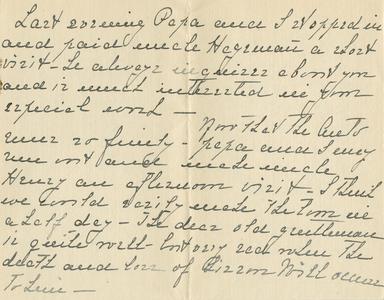 Last evening Papa and I stopped in
and paid uncle Hegeman a short
visit - he always inquires about you
and is much interested in your
especial work -
Now that the Auto
runs so finely - papa and I may
run out and make uncle
Henry an afternoon visit - I think
we could easily make the time in
a half day - The dear old gentleman
is quite well - but very sad when the
death and loss of Cousin Will occurs
to him -